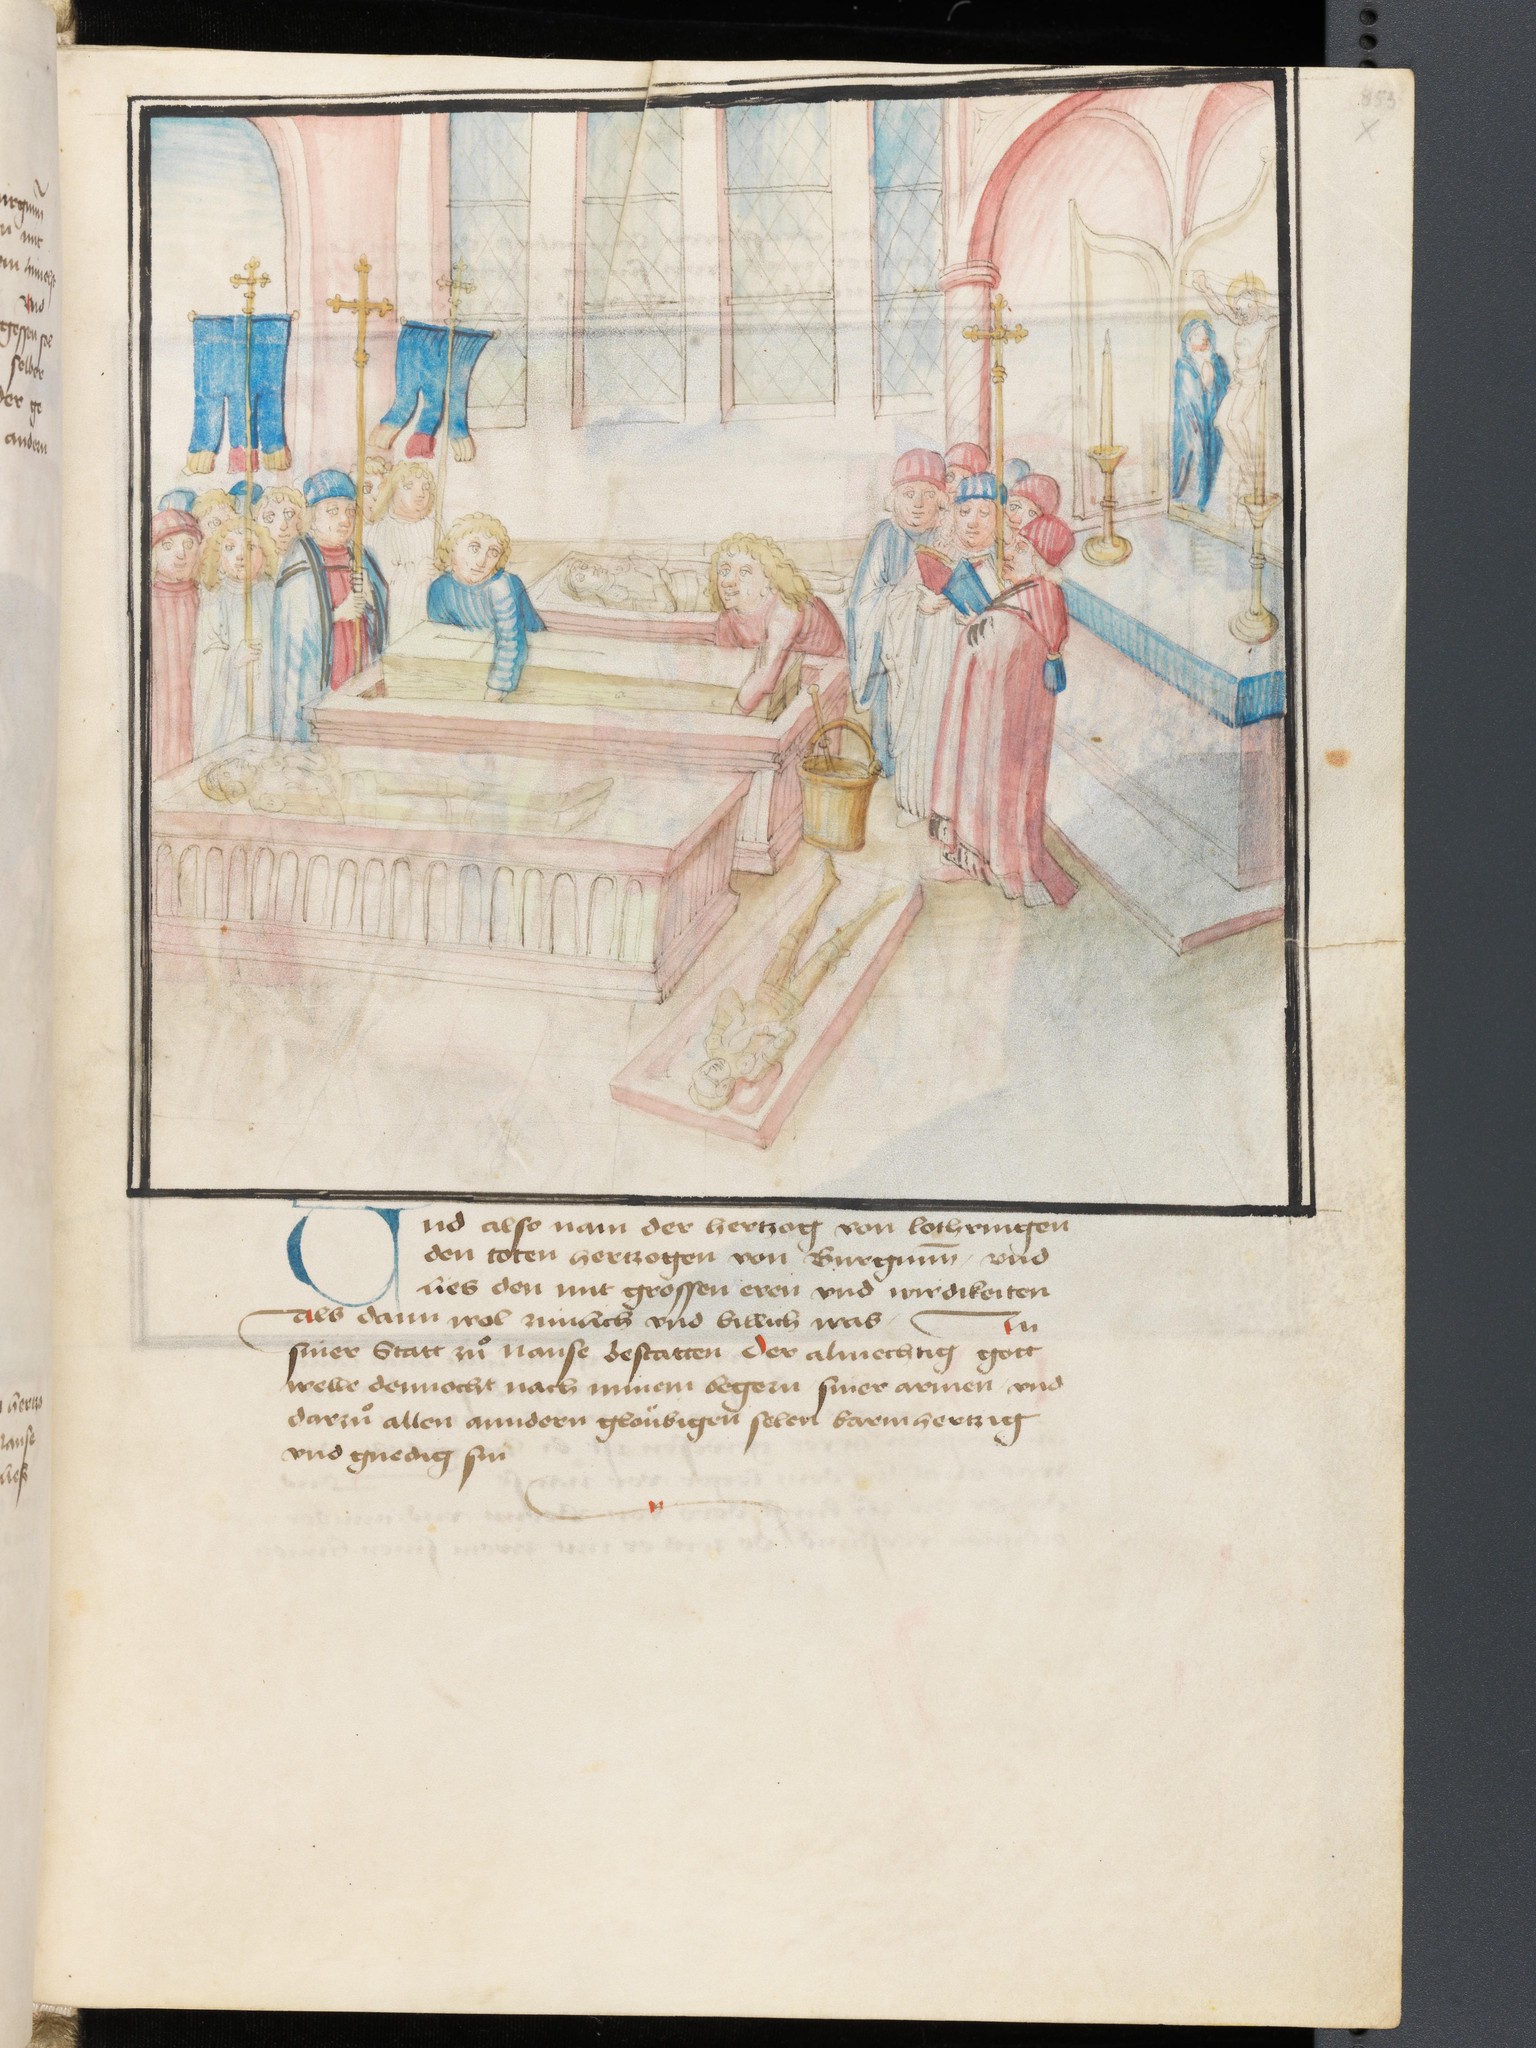 853
x
Und also nam der hertzog von lothringen
den toten hertzogen von Burgunn̄ / vnd
lies den mit grossen eren vnd wirdikeiten
als dann wol zimlich vnd billich was / In
siner Statt zů Nanse bestatten Der almechtig gott
welle dennocht nach minem begern siner armen vnd
darzů allen anndern gloübigen selen barmhertzig
vnd gnedig sin